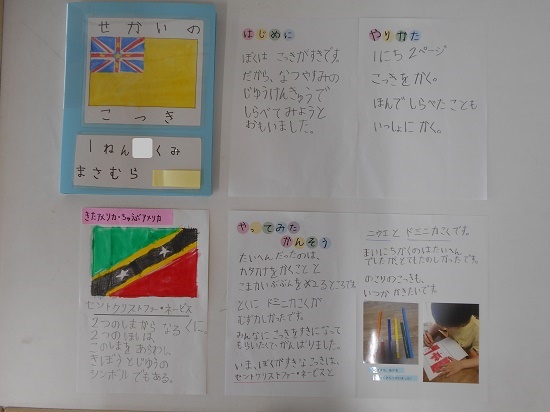 せかいの
こっき
1ねん
くみ
まさむら
はじめに
ぼくは こっきがすきです。
だから、なつやすみの
じゆうけんきゅうで
しらべてみようと
おもいました。
やりかた
1にち2ページ
こっきをかく。
ほんでしらべたことも
いっしょにかく。
きたアメリカ・ちゅうぶアメリカ
セントクリストファー・ネービス
2つのしまから なる くに。
2つのほしは、
このしまをあらわし
きぼうとじゆうの
シンボルでもある。
やってみた
かんそう
たいへんだったのは、
カタカナをかくことと
こまかいぶぶんをぬるところです。
とくに ドミニカこくが
むずかしかったです。
みんなに こっきをすきになって
もらいたくてがんばりました。
いま、ぼくがすきなこっきは、
セントクリストファー・ネービスと
ニウエと ドミニカこくです。
まいにちかくのはたいへん
でしたが、とてもたのしかったです。
のこりのこっきも、
いつか かきたいです。